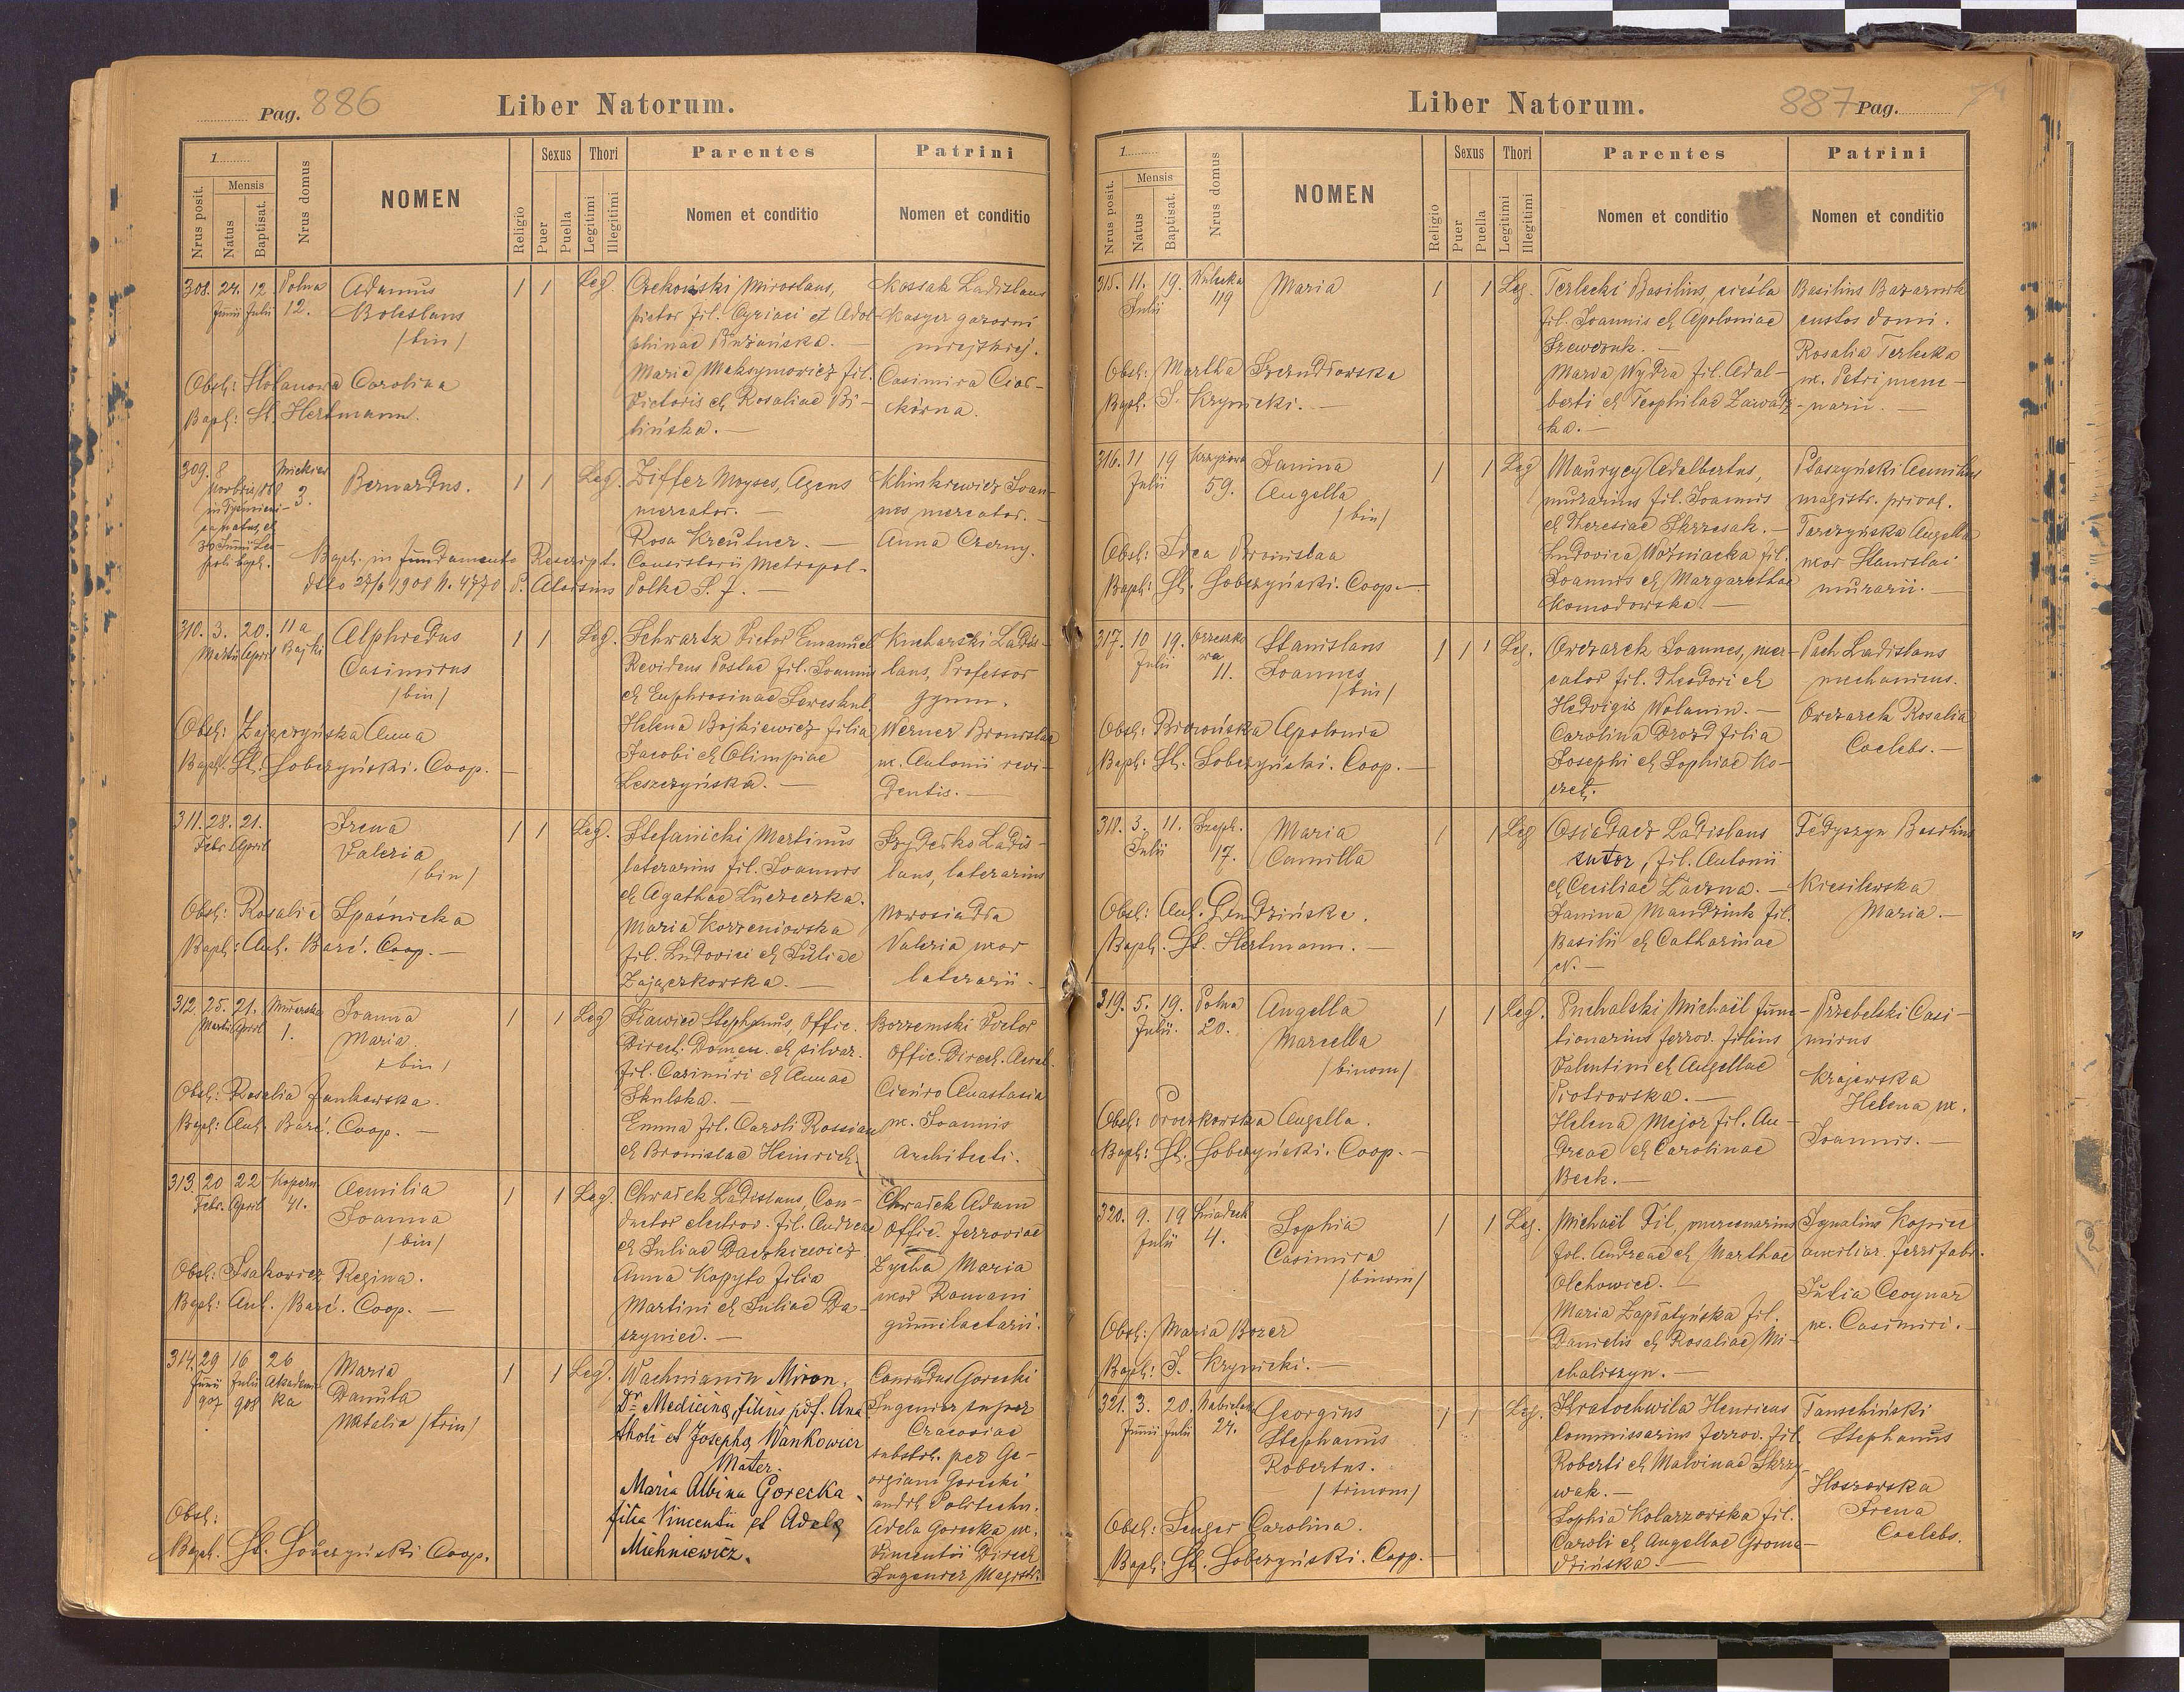 Pag. 886
Liber Natorum.
1
Nrus posit.
Mensis
Natus
Baptisat.
Nrus domus
NOMEN
Religio
Sexus
Puer
Puella
Thori
Legitimi
Illegitimi
Parentes
Nomen et conditio
Patrini
Nomen et conditio
308. 24. 12 Polna
Junii Julii 12.
Adamus
Boleslaus
/bin/
1 1 Leg
Miroslaus,
pictor fil. Cyriaci et Adol-
phinae
Maria Maksymowicz fil.
Victoris et Rosaliae Bi-
lińska. —
Kossak Ladislaus
miejskiej.
Casimira
Obst: Carolina
Bapt: St. Hertmann.
309. 8
3.
Bernardus.
1 1 Leg.
Ziffer Moyses, Agens
mercator. —
Rosa Kreutner. —
Klimkiewicz Joan-
nes mercator. —
Anna Czerny.
Bapt. in fundamento Rescript. Consistorii Metropol-
dtto 27/6 1908 N. 4770 P. Aloisius Polka S. J. —
310. 3. 20. 11 a
Martii April Bajki
Alphredus
Casimirus
/bin/
1 1 Leg.
Schwartz Victor Emanuel
Revidens Postae fil. Joannis
et Euphrosinae
Helena Bojkiewicz filia
Jacobi et Olimpiae
Leszczyńska. —
Kucharski Ladis-
laus, Professor
gymn.
Werner Bronislaa
ux. Antonii revi-
dentis. —
Obst: Zajączyńska Anna
Bapt. St. Sobczyński. Coop. —
311. 28. 21.
Febr. April
Irena
Valeria
/bin/
1 1 Leg.
Stefanicki Martinus
laterarius fil. Joannis
et Agathae
Maria Korzeniowska
fil. Ludovici et Juliae
Zajączkowska. —
Ladis-
laus, laterarius
Nowosiadła
Valeria uxor
laterarii. —
Obst: Rosalia Spaśnicka
Bapt: Ant. Baré. Coop. —
312. 25. 21. Murarska
Martii April 1.
Joanna
Maria
/bin/
1 1 Leg
Stephanus, Offic.
Direct. Domen. et silvar.
fil. Casimiri et Annae
Skulska. —
Emma fil. Caroli Rossian
et Bronislae Heinrich
Borzemski Victor
Offic. Direct.
Anastasia
ux. Joannis
Architecti.
Obst: Rosalia Jankowska.
Bapt: Ant. Baré. Coop. —
313. 20 22 Kopern.
Febr. April 41.
Aemilia
Joanna
/bin/
1 1 Leg.
Chwałek Ladislaus, Con-
ductor electrov. fil. Andreae
et Juliae Daczkiewicz
Anna Kopyto filia
Martini et Juliae Da-
szyniec. —
Chwałek Adam
Offic. ferroviae
Zycha Maria
uxor Romani
Obst: Isakowicz Regina.
Bapt: Ant. Baré. Coop. —
314. 29 16 26
Junii Julii Akademi-
907 908 ka
Maria
Danuta
Natalia /trin/
1 1 Leg.
Wachnianin Miron,
Dr. Medicinae, filius pdf. Ana
tholi et Josepha Wankowicz
Mater.
Maria Albina Gorecka
filia Vincentii et Adela
Michniewicz.
Conradus Gorecki
Ingenier super
Cracoviae
substit. per Ge-
orgium Gorecki
Politechn.
Adela Gorecka ux.
Vincentii Direct.
Ingenier Magistr.
Obst:
Bapt. St. Sobczyński Coop.
Liber Natorum.
887 Pag.
1
Nrus posit.
Mensis
Natus
Baptisat.
Nrus domus
NOMEN
Religio
Sexus
Puer
Puella
Thori
Legitimi
Illegitimi
Parentes
Nomen et conditio
Patrini
Nomen et conditio
315. 11. 19. Wulecka
Julii 119
Maria
1 1 Leg.
Terlecki Basilius, cieśla
fil. Joannis et Apoloniae
Szewczuk. —
Maria Wydra fil. Adal-
berti et Teophilae Zawadz-
ka. —
Basilius Bazarnik
custos domi.
Rosalia Terlecka
ux. Petri merce-
narii. —
Obst: Martha
Bapt. J. Krynicki. —
316. 11 19
Julii 59.
Janina
Angella
/bin/
1 1 Leg
Maurycy Adalbertus,
murarius fil. Joannis
et Theresiae Skrzesak. —
Ludovica Woźniacka fil.
Joannis et Margarethae
Komodowska. —
Ptaszyński Aemilius
magistr. privat.
Tarczyńska Angella
uxor Stanislai
murarii. —
Obst: Bronislaa
Bapt: St. Sobczyński. Coop. —
317. 10 19. Orzeszko
Julii wa 11.
Stanislaus
Joannes
/bin/
1 1 1 Leg.
Owczarek Joannes, mer-
cator fil. Theodori et
Hedvigis Wolanin. —
Carolina Drozd filia
Josephi et Sophiae Ko-
czet. —
Pach Ladislaus
mechanicus.
Owczarek Rosalia
Coelebs. —
Obst: Apolonia
Bapt: St. Sobczyński. Coop. —
318. 3. 11. Szept.
Julii 17.
Maria
Camilla
1 1 Leg
Osiadacz Ladislaus
sutor, fil. Antonii
et Ceciliae —
Janina Mandziuk fil.
Basilii et Catharinae
N. —
Fedyszyn Basilius
Kiesilewska
Maria. —
Obst: Ant.
Bapt. St. Hertmann. —
319. 5. 19. Polna
Julii. 20.
Angella
Marcella
/binom/
1 1 Leg.
Puchalski Michaël func-
tionarius ferrov. filius
Valentini et Angellae
Piotrowska. —
Helena Mejor fil. An-
dreae et Carolinae
Beck. —
Przebelski Casi-
mirus
Krajewska
Helena ux.
Joannis. —
Obst: Proczkowska Angella.
Bapt: St. Sobczyński. Coop. —
320. 9. 19 Śniadeck
Julii 4.
Sophia
Casimira
/binom/
1 1 Leg.
Michaël Fil, mercenarius
fil. Andreae et Marthae
Olchowiec.
Maria Zapłatyńska fil.
Danielis et Rosaliae Mi-
chaliszyn. —
Ignatius Kopiec
auxiliar. ferrifabr.
Julia
ux. Casimiri. —
Obst: Maria Bozer
Bapt: J. Krynicki. —
321. 3. 20. Nabielaka
Junii Julii 27.
Georgius
Stephanus
Robertus.
/trinom/
1 1 Leg.
Kratochwila Henricus
Commissarius ferrov. fil.
Roberti et Malvinae Skrzy-
wak. —
Sophia Kolarzowska fil.
Caroli et Angellae Groma-
dzińska. —
Tanschiński
Stephanus
Hoszowska
Irena
Coelebs.
Obst: Senger Carolina.
Bapt: St. Sobczyński. Coop. —